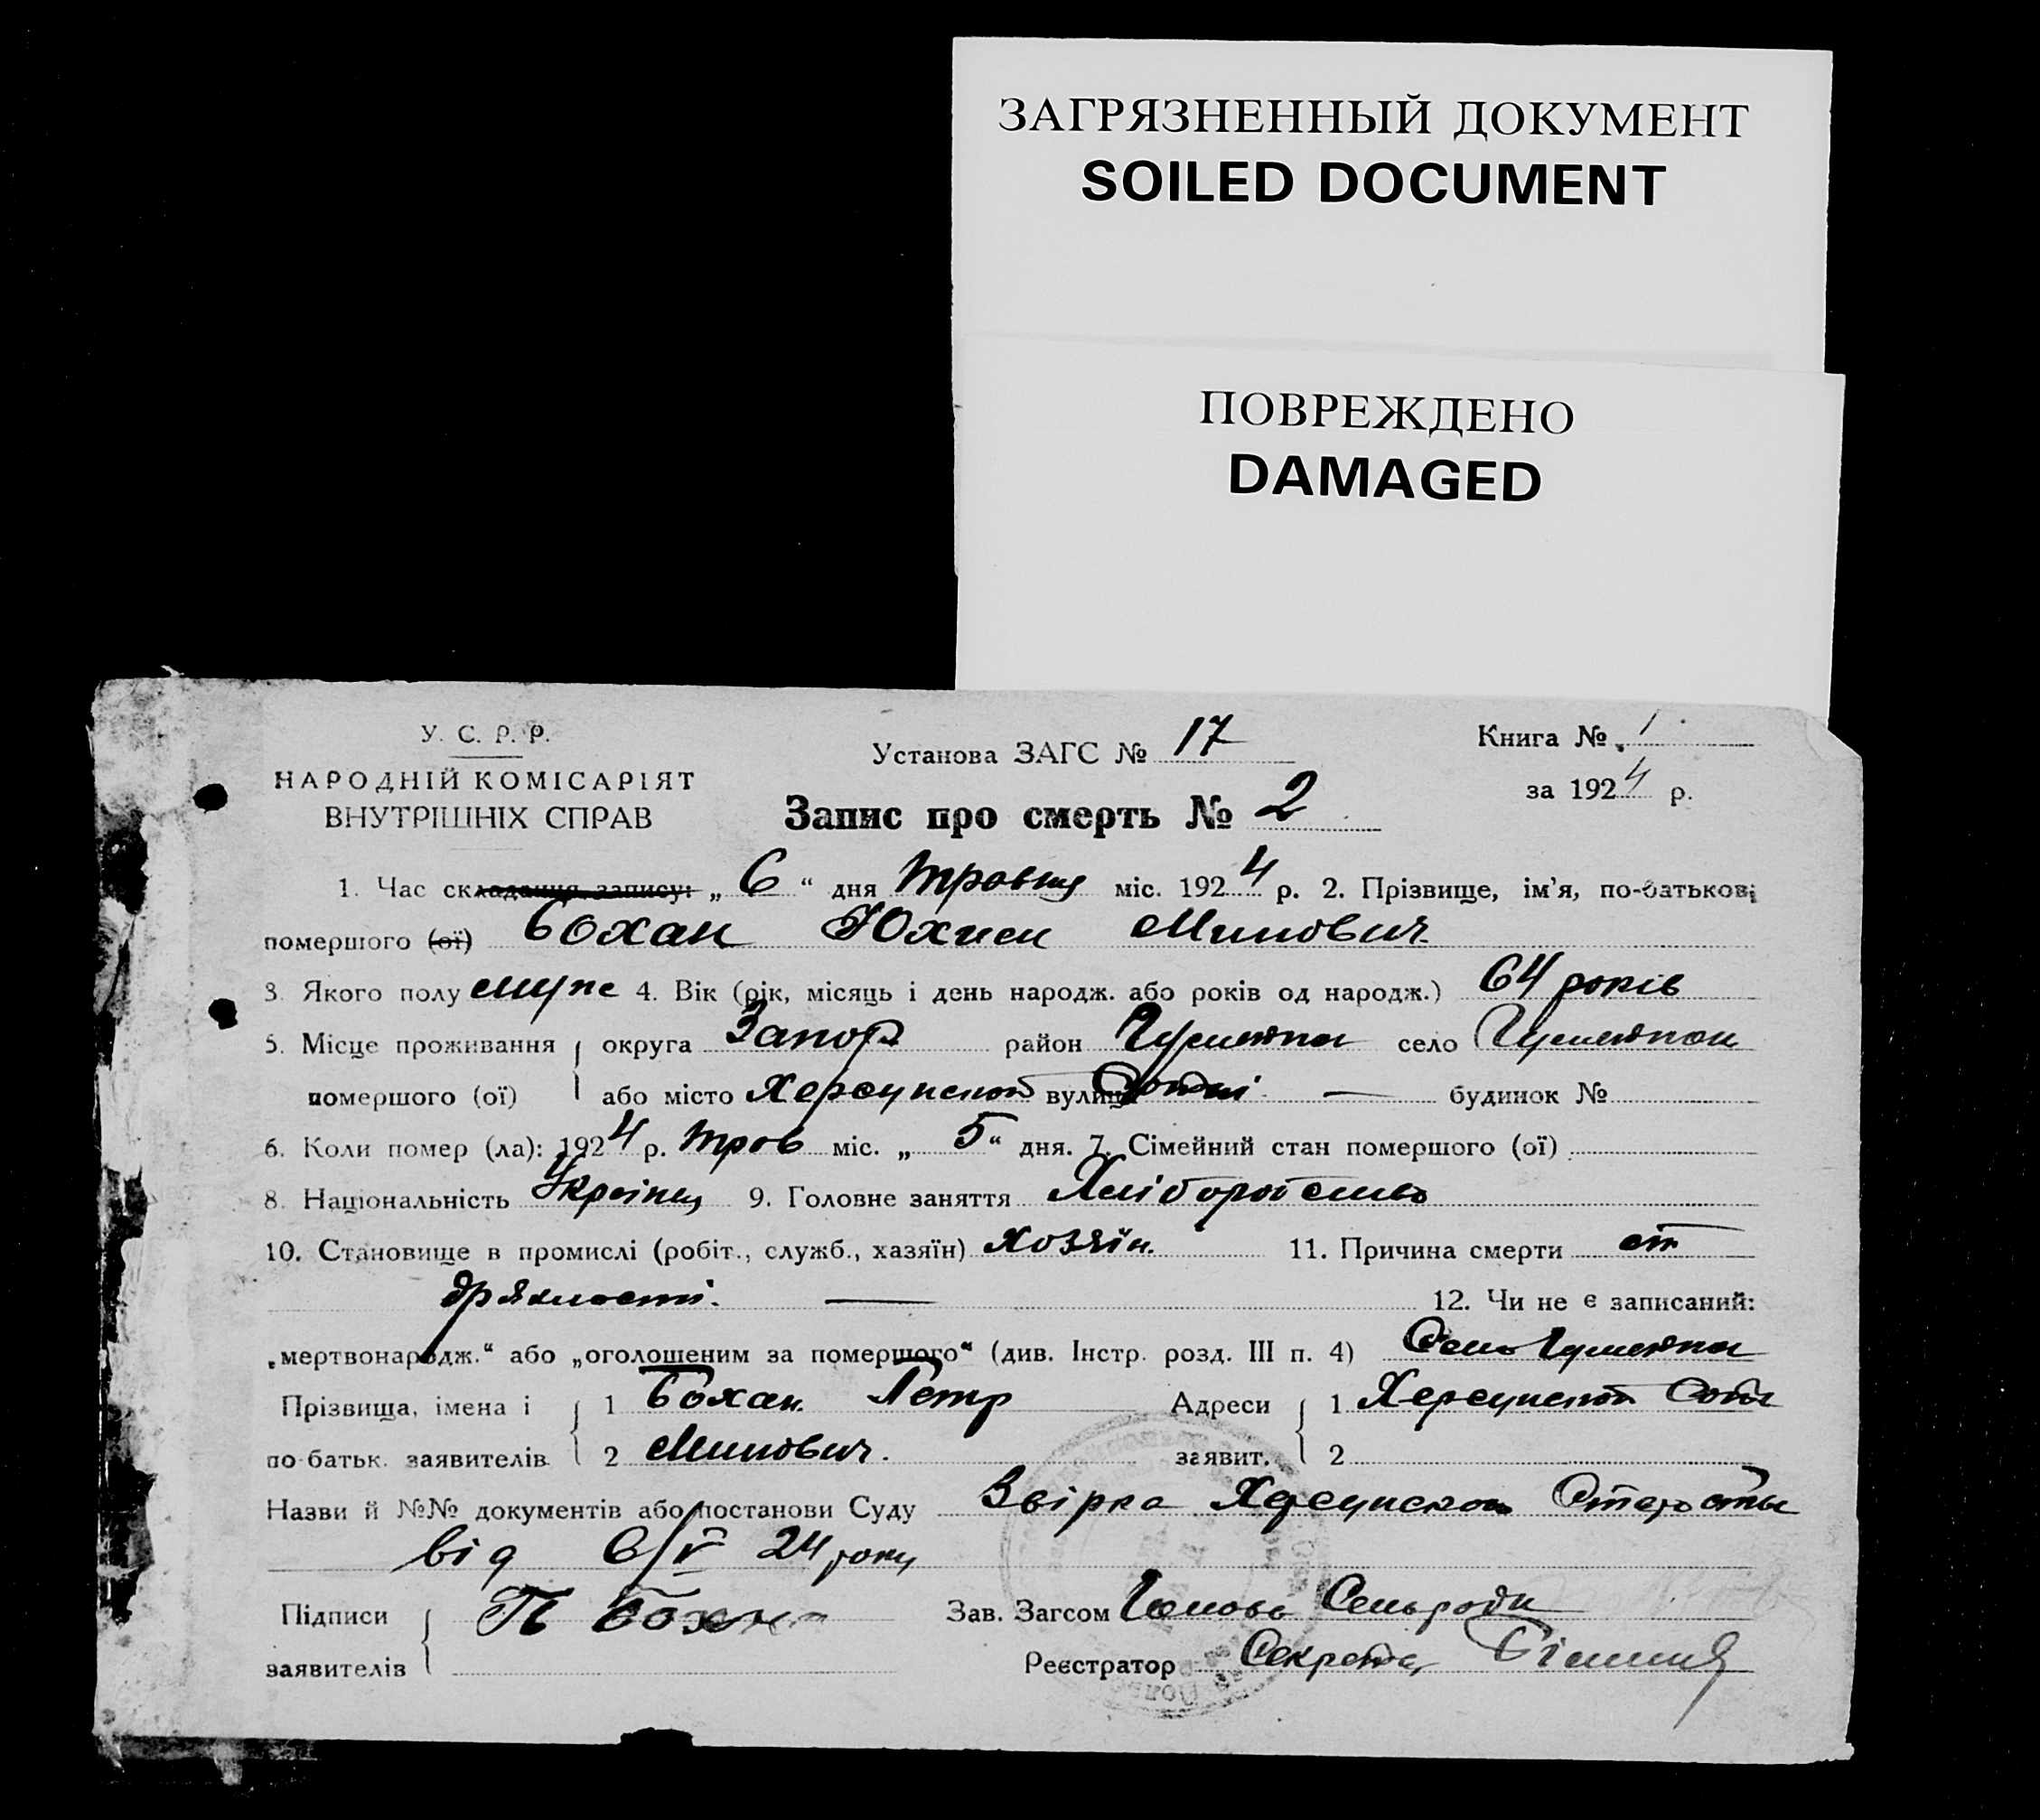 ЗАГРЯЗНЕННЫЙ ДОКУМЕНТ
SOILED DOCUMENT
ПОВРЕЖДЕНО
DAMAGED
У. С. Р. Р.
НАРОДНІЙ КОМІСАРІЯТ
ВНУТРІШНІХ СПРАВ
Установа ЗАГС № 17
Книга № 1
за 1924 р.
Запис про смерть № 2
1. Час складання запису: „ 6 “ дня травня міс. 1924 р. 2. Прізвище, ім'я, по-батькові
помершого (ої) Бохан Юхим Минович
3. Якого полу муж 4. Вік (рік, місяць і день народж. або років од народж.) 64 років
5. Місце проживання округа Запор район село
помершого (ої) або місто Херсунской вулиця Сотні — будинок №
6. Коли помер (ла): 1924 р. трав міс. „ 5 “ дня. 7. Сімейний стан помершого (ої)
8. Національність Українец 9. Головне заняття Хліборобство
10. Становище в промислі (робіт., служб., хазяїн) хозяїн. 11. Причина смерти от
дряхлости. — 12. Чи не є записаний:
„мертвонародж.“ або „оголошеним за помершого“ (див. Інстр. розд. III п. 4) Село
Прізвища, імена і 1 Бохан Петр Адреси 1 Херсунской Сотні
по батьк. заявителів 2 Минович. заявит. 2
Назви й №№ документів або постанови Суду Звірка Херсунской
від 6/V 24 року
Підписи П Бохан Зав. Загсом Голова Сельради
заявителів Реєстратор Секретар